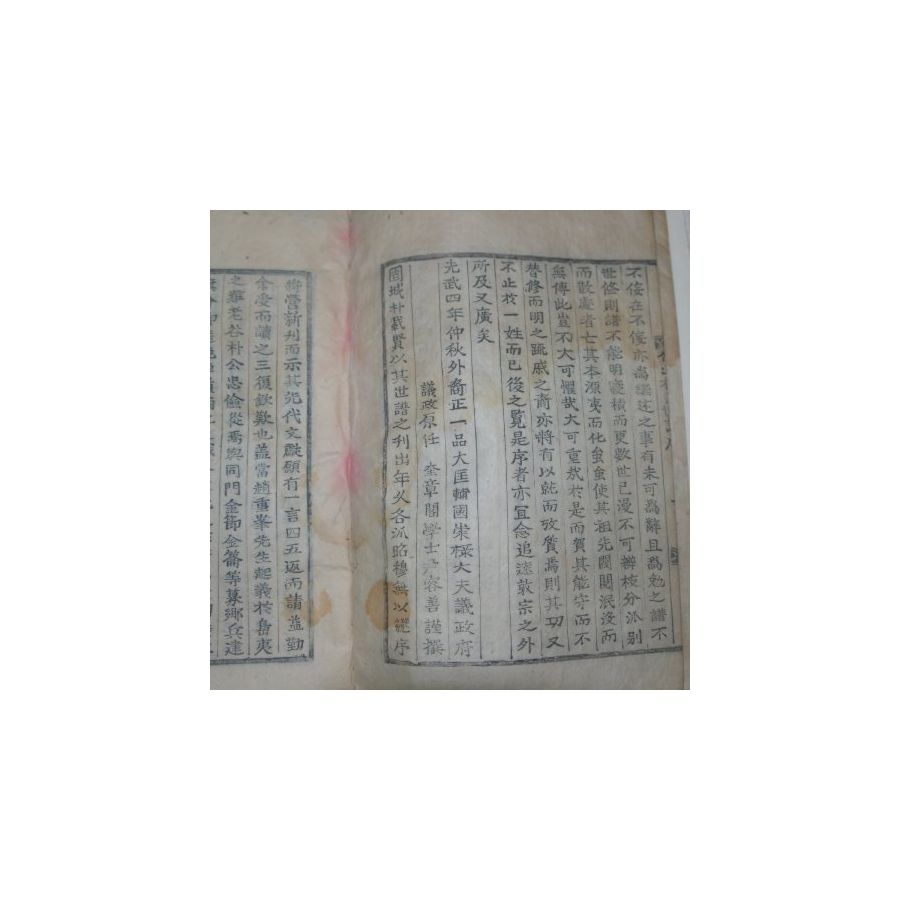 不佞在不佞亦爲繼述之事有未可爲辭且爲勉之譜不
世修則譜不能明寖積而更數世已漫不可辨枝分派別
而散處者亡其本源夷而化蚩蚩使其祖先閥閱泯沒而
無傳此豈不大可懼哉大可重哉於是而賀其能守而不
替修而明之疏戚之裔亦將有以就而攷質焉則其功又
不止於一姓而已後之覽是序者亦宜念追遠敦宗之外
所及又廣矣
光武四年仲秋外裔正一品大匡輔國崇祿大夫議政府
議政原任 奎章閣學士尹容善謹撰
固城朴載賢以其世譜之刊出年久各派昭穆無以繼序
將營新刊而示其先代文獻願有一言四五返而請益勤
余受而讀之三復欽歎也盖當趙重峯先生起義於島夷
之難老谷朴公忠儉從焉與同門金節金籥等募鄉兵達